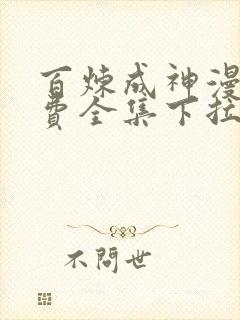 百炼成神漫
费全集下拉
不問世